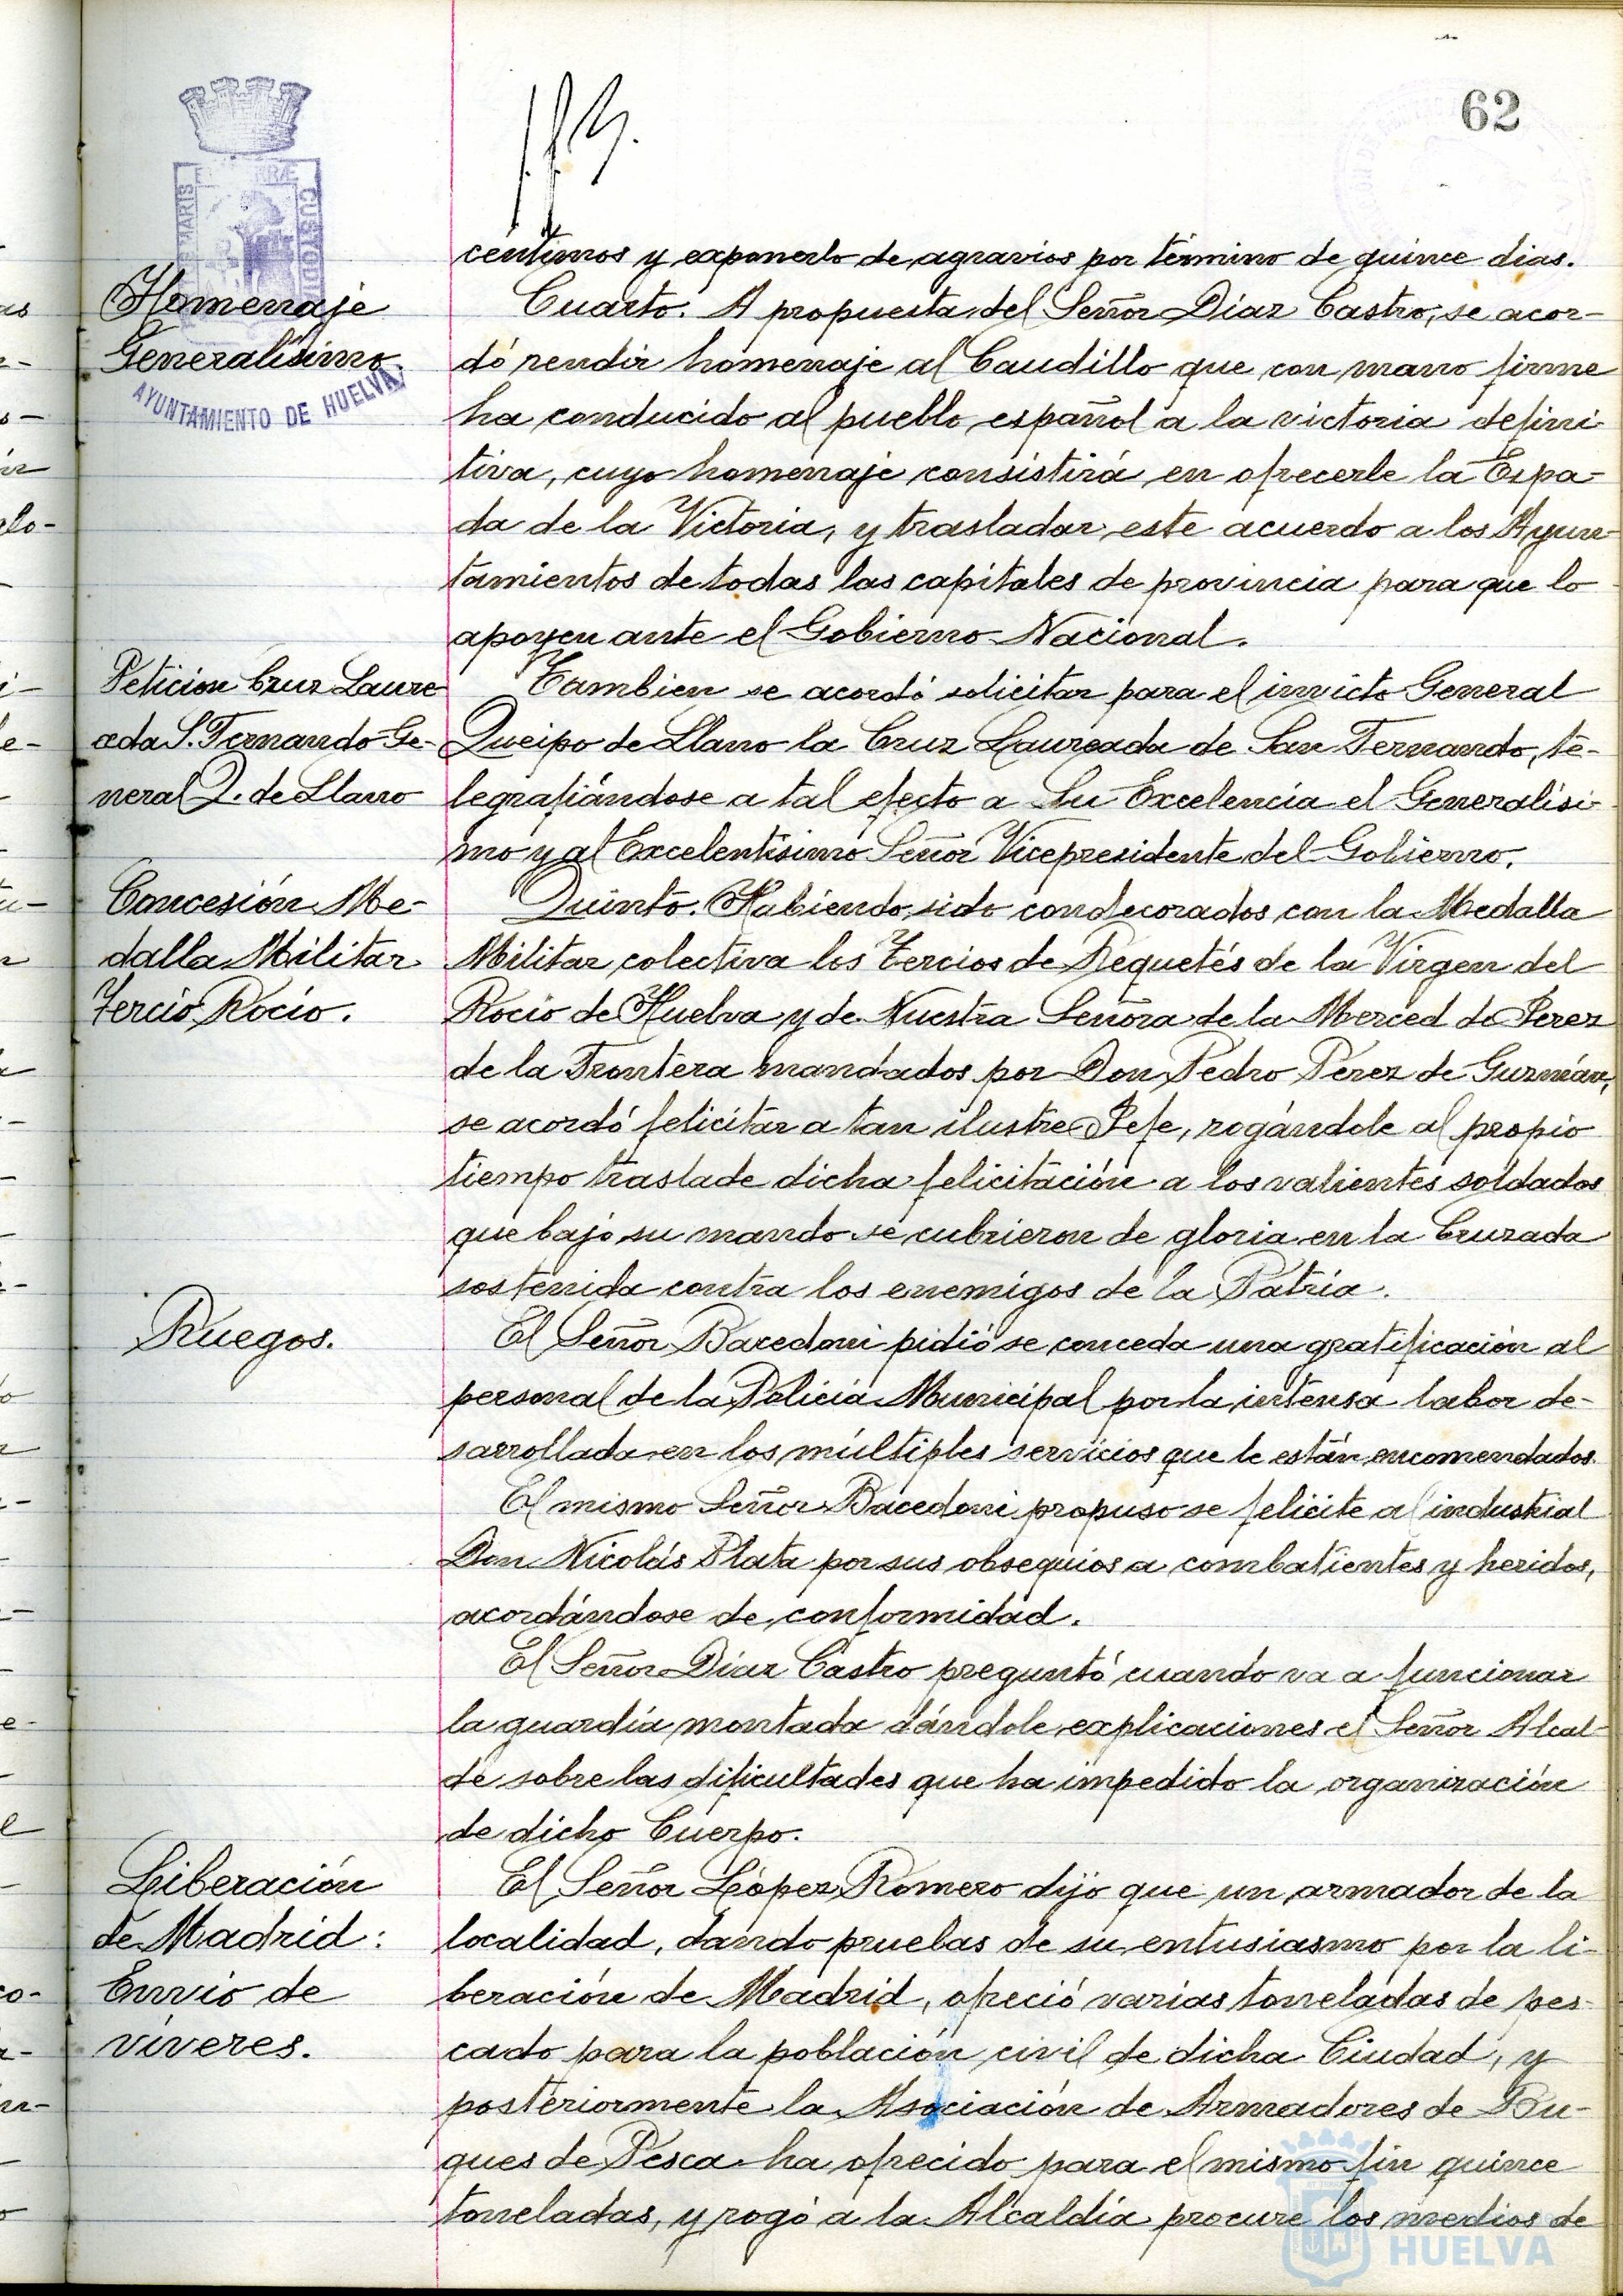 62
céntimos y exponerlo de agravios por término de quince dias.
Homenaje
Generalísimo.
AYUNTAMIENTO DE HUELVA
Cuarto. A propuesta del Señor Díaz Castro, se acor-
dó rendir homenaje al Caudillo que con mano firme
ha conducido al pueblo español a la victoria defini-
tiva, cuyo homenaje consistirá en ofrecerle la Espa-
da de la Victoria, y trasladar este acuerdo a los Ayun-
tamientos de todas las capitales de provincia para que lo
apoyen ante el Gobierno Nacional.
Peticion Cruz Laure
ada S. Fernando Ge-
neral Q. de Llano
Tambien se acordó solicitar para el invicto General
Queipo de Llano la Cruz Laureada de San Fernando, te-
legrafiándose a tal efecto a Su Excelencia el Generalísi-
mo y al Excelentísimo Señor Vicepresidente del Gobierno.
Concesión Me-
dalla Militar
Tercio Rocío.
Quinto. Habiendo sido condecorados con la Medalla
Militar colectiva los Tercios de Requetés de la Virgen del
Rocío de Huelva y de Nuestra Señora de la Merced de Jerez
de la Frontera mandados por Don Pedro Pérez de Guzmán,
se acordó felicitar a tan ilustre Jefe, rogándole al propio
tiempo traslade dicha felicitación a los valientes soldados
que bajo su mando se cubrieron de gloria en la Cruzada
sostenida contra los enemigos de la Patria.
Ruegos.
El Señor Bacedoni pidió se conceda una gratificación al
personal de la Policía Municipal por la intensa labor de-
sarrollada en los múltiples servicios que le están encomendados.
El mismo Señor Bacedoni propuso se felicite al industrial
Don Nicolás Plata por sus obsequios a combatientes y heridos,
acordándose de conformidad.
El Señor Díaz Castro preguntó cuando va a funcionar
la guardia montada dándole explicaciones el Señor Alcal-
de sobre las dificultades que ha impedido la organización
de dicho Cuerpo.
Liberación
de Madrid:
Envio de
víveres.
El Señor López Romero dijo que un armador de la
localidad, dando pruebas de su entusiasmo por la li-
beración de Madrid, ofreció varias toneladas de pes-
cado para la población civil de dicha Ciudad, y
posteriormente la Asociación de Armadores de Bu-
ques de Pesca ha ofrecido para el mismo fin quince
toneladas, y rogó a la Alcaldía procure los medios de
HUELVA